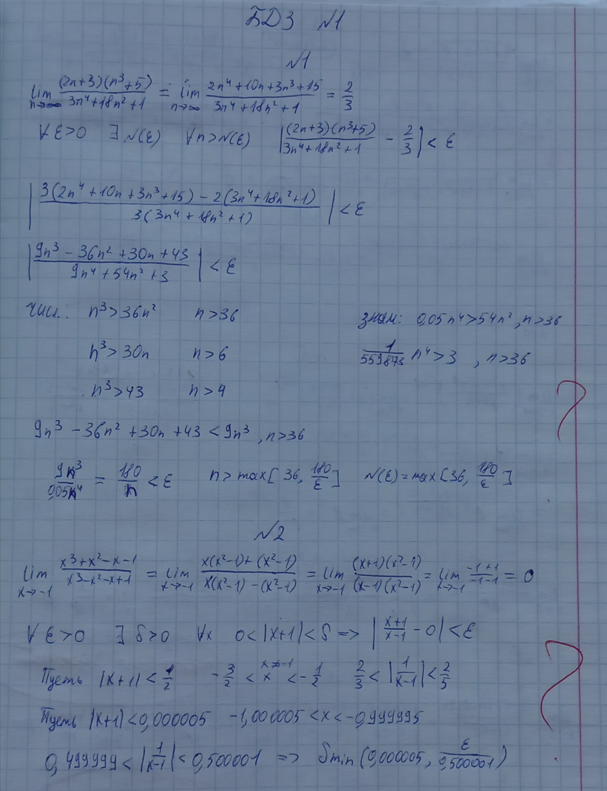 БДЗ №1
№1
lim n→∞ (2n+3)(n³+5)/(3n⁴+18n²+1) = lim n→∞ (2n⁴+10n+3n³+15)/(3n⁴+18n²+1) = 2/3
∀ε>0 ∃N(ε) ∀n>N(ε) |(2n+3)(n³+5)/(3n⁴+18n²+1) - 2/3| < ε
|(3(2n⁴+10n+3n³+15) - 2(3n⁴+18n²+1))/(3(3n⁴+18n²+1))| < ε
|(9n³ - 36n² + 30n + 43)/(9n⁴+54n²+3)| < ε
числ.: n³>36n² n>36 знам: 0,05n⁴>54n², n>36
n³>30n n>6 1/559873 n⁴>3, n>36
n³>43 n>4
9n³ - 36n² + 30n + 43 < 9n³, n>36
9n³/0,05n⁴ = 180/n < ε n> max[36, 180/ε] N(ε) = max[36, 180/ε]
№2
lim x→-1 (x³+x²-x-1)/(x³-x²-x+1) = lim x→-1 (x(x²-1)+(x²-1))/(x(x²-1)-(x²-1)) = lim x→-1 (x+1)(x²-1)/(x-1)(x²-1) = lim x→-1 (-1+1)/(-1-1) = 0
∀ε>0 ∃δ>0 ∀x 0<|x+1|<δ => |(x+1)/(x-1) - 0| < ε
Пусть |x+1| < 1/2 -3/2 < x < -1/2 x≠-1 2/3 < |1/(x-1)| < 2/5
Пусть |x+1| < 0,000005 -1,000005 < x < -0,999995
0,499999 < |1/(x-1)| < 0,500001 => δmin(0,000005, ε/0,500001)